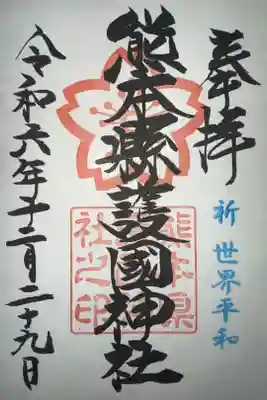 奉拝
祈 世界平和
熊本縣護國神社
熊本県
社之印
令和六年十二月二十九日